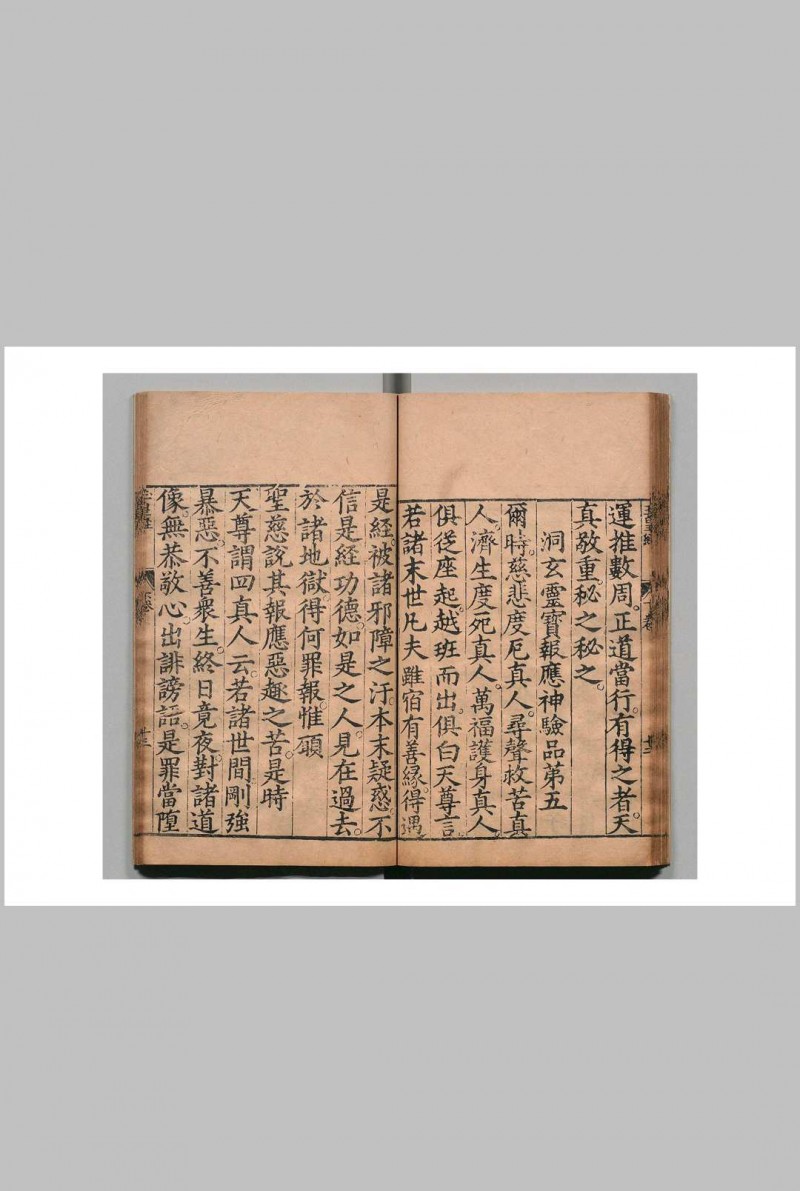 運推數周。正道當行。有得之者。天
真敬重。秘之秘之。
洞玄靈寶報應神驗品第五
爾時。慈悲度厄真人。尋聲救苦真
人。濟生度死真人。萬福護身真人。
俱從座起。越班而出。俱白天尊言。
若諸末世凡夫。雖宿有善緣。得遇
是經。被諸邪障之汙。本末疑惑。不
信是經功德。如是之人。見在過去。
於諸地獄。得何罪報。惟願
聖慈說其報應惡趣之苦。是時
天尊謂四真人云。若諸世間剛強
暴惡。不善衆生。終日竟夜。對諸道
像。無恭敬心。出誹謗語。是罪當墮
下卷
廿三